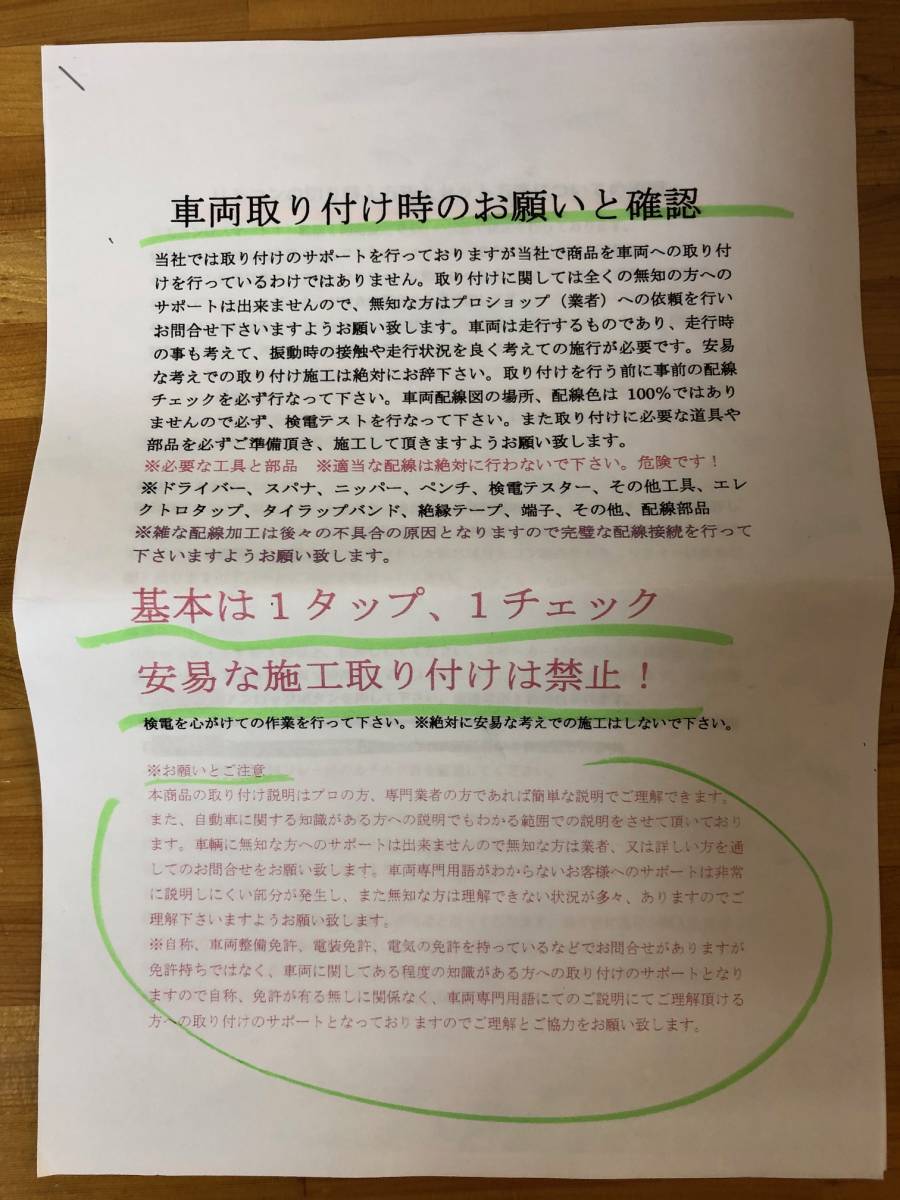 車両取り付け時のお願いと確認
当社では取り付けのサポートを行っておりますが当社で商品を車両への取り付
けを行っているわけではありません。取り付けに関しては全くの無知の方への
サポートは出来ませんので、無知な方はプロショップ（業者）への依頼を行い
お問合せ下さいますようお願い致します。車両は走行するものであり、走行時
の事も考えて、振動時の接触や走行状況を良く考えての施行が必要です。安易
な考えでの取り付け施工は絶対にお辞下さい。取り付けを行う前に事前の配線
チェックを必ず行なって下さい。車両配線図の場所、配線色は 100%ではあり
ませんので必ず、検電テストを行なって下さい。また取り付けに必要な道具や
部品を必ずご準備頂き、施工して頂きますようお願い致します。
※必要な工具と部品　※適当な配線は絶対に行わないで下さい。危険です！
※ドライバー、スパナ、ニッパー、ペンチ、検電テスター、その他工具、エレ
クトロタップ、タイラップバンド、絶縁テープ、端子、その他、配線部品
※雑な配線加工は後々の不具合の原因となりますので完璧な配線接続を行って
下さいますようお願い致します。
基本は１タップ、１チェック
安易な施工取り付けは禁止！
検電を心がけての作業を行って下さい。※絶対に安易な考えでの施工はしないで下さい。
※お願いとご注意
本商品の取り付け説明はプロの方、専門業者の方であれば簡単な説明でご理解できます。
また、自動車に関する知識がある方への説明でもわかる範囲での説明をさせて頂いており
ます。車輌に無知な方へのサポートは出来ませんので無知な方は業者、又は詳しい方を通
してのお問合せをお願い致します。車両専門用語がわからないお客様へのサポートは非常
に説明しにくい部分が発生し、また無知な方は理解できない状況が多々、ありますのでご
理解下さいますようお願い致します。
※自称、車両整備免許、電装免許、電気の免許を持っているなどでお問合せがありますが
免許持ちではなく、車両に関してある程度の知識がある方への取り付けのサポートとなり
ますので自称、免許が有る無しに関係なく、車両専門用語にてのご説明にてご理解頂ける
方への取り付けのサポートとなっておりますのでご理解とご協力をお願い致します。